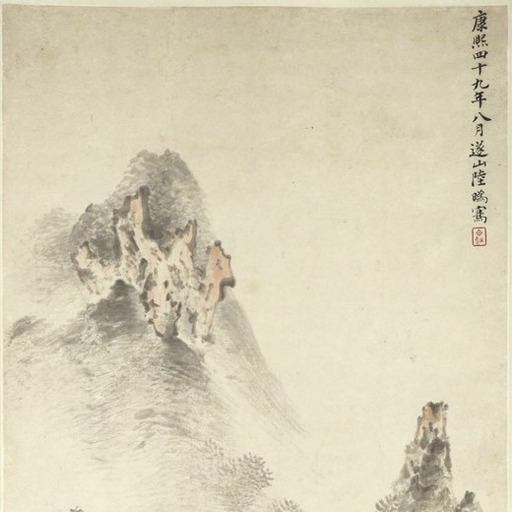 康熙四十九年八月遂山陸㬙寫